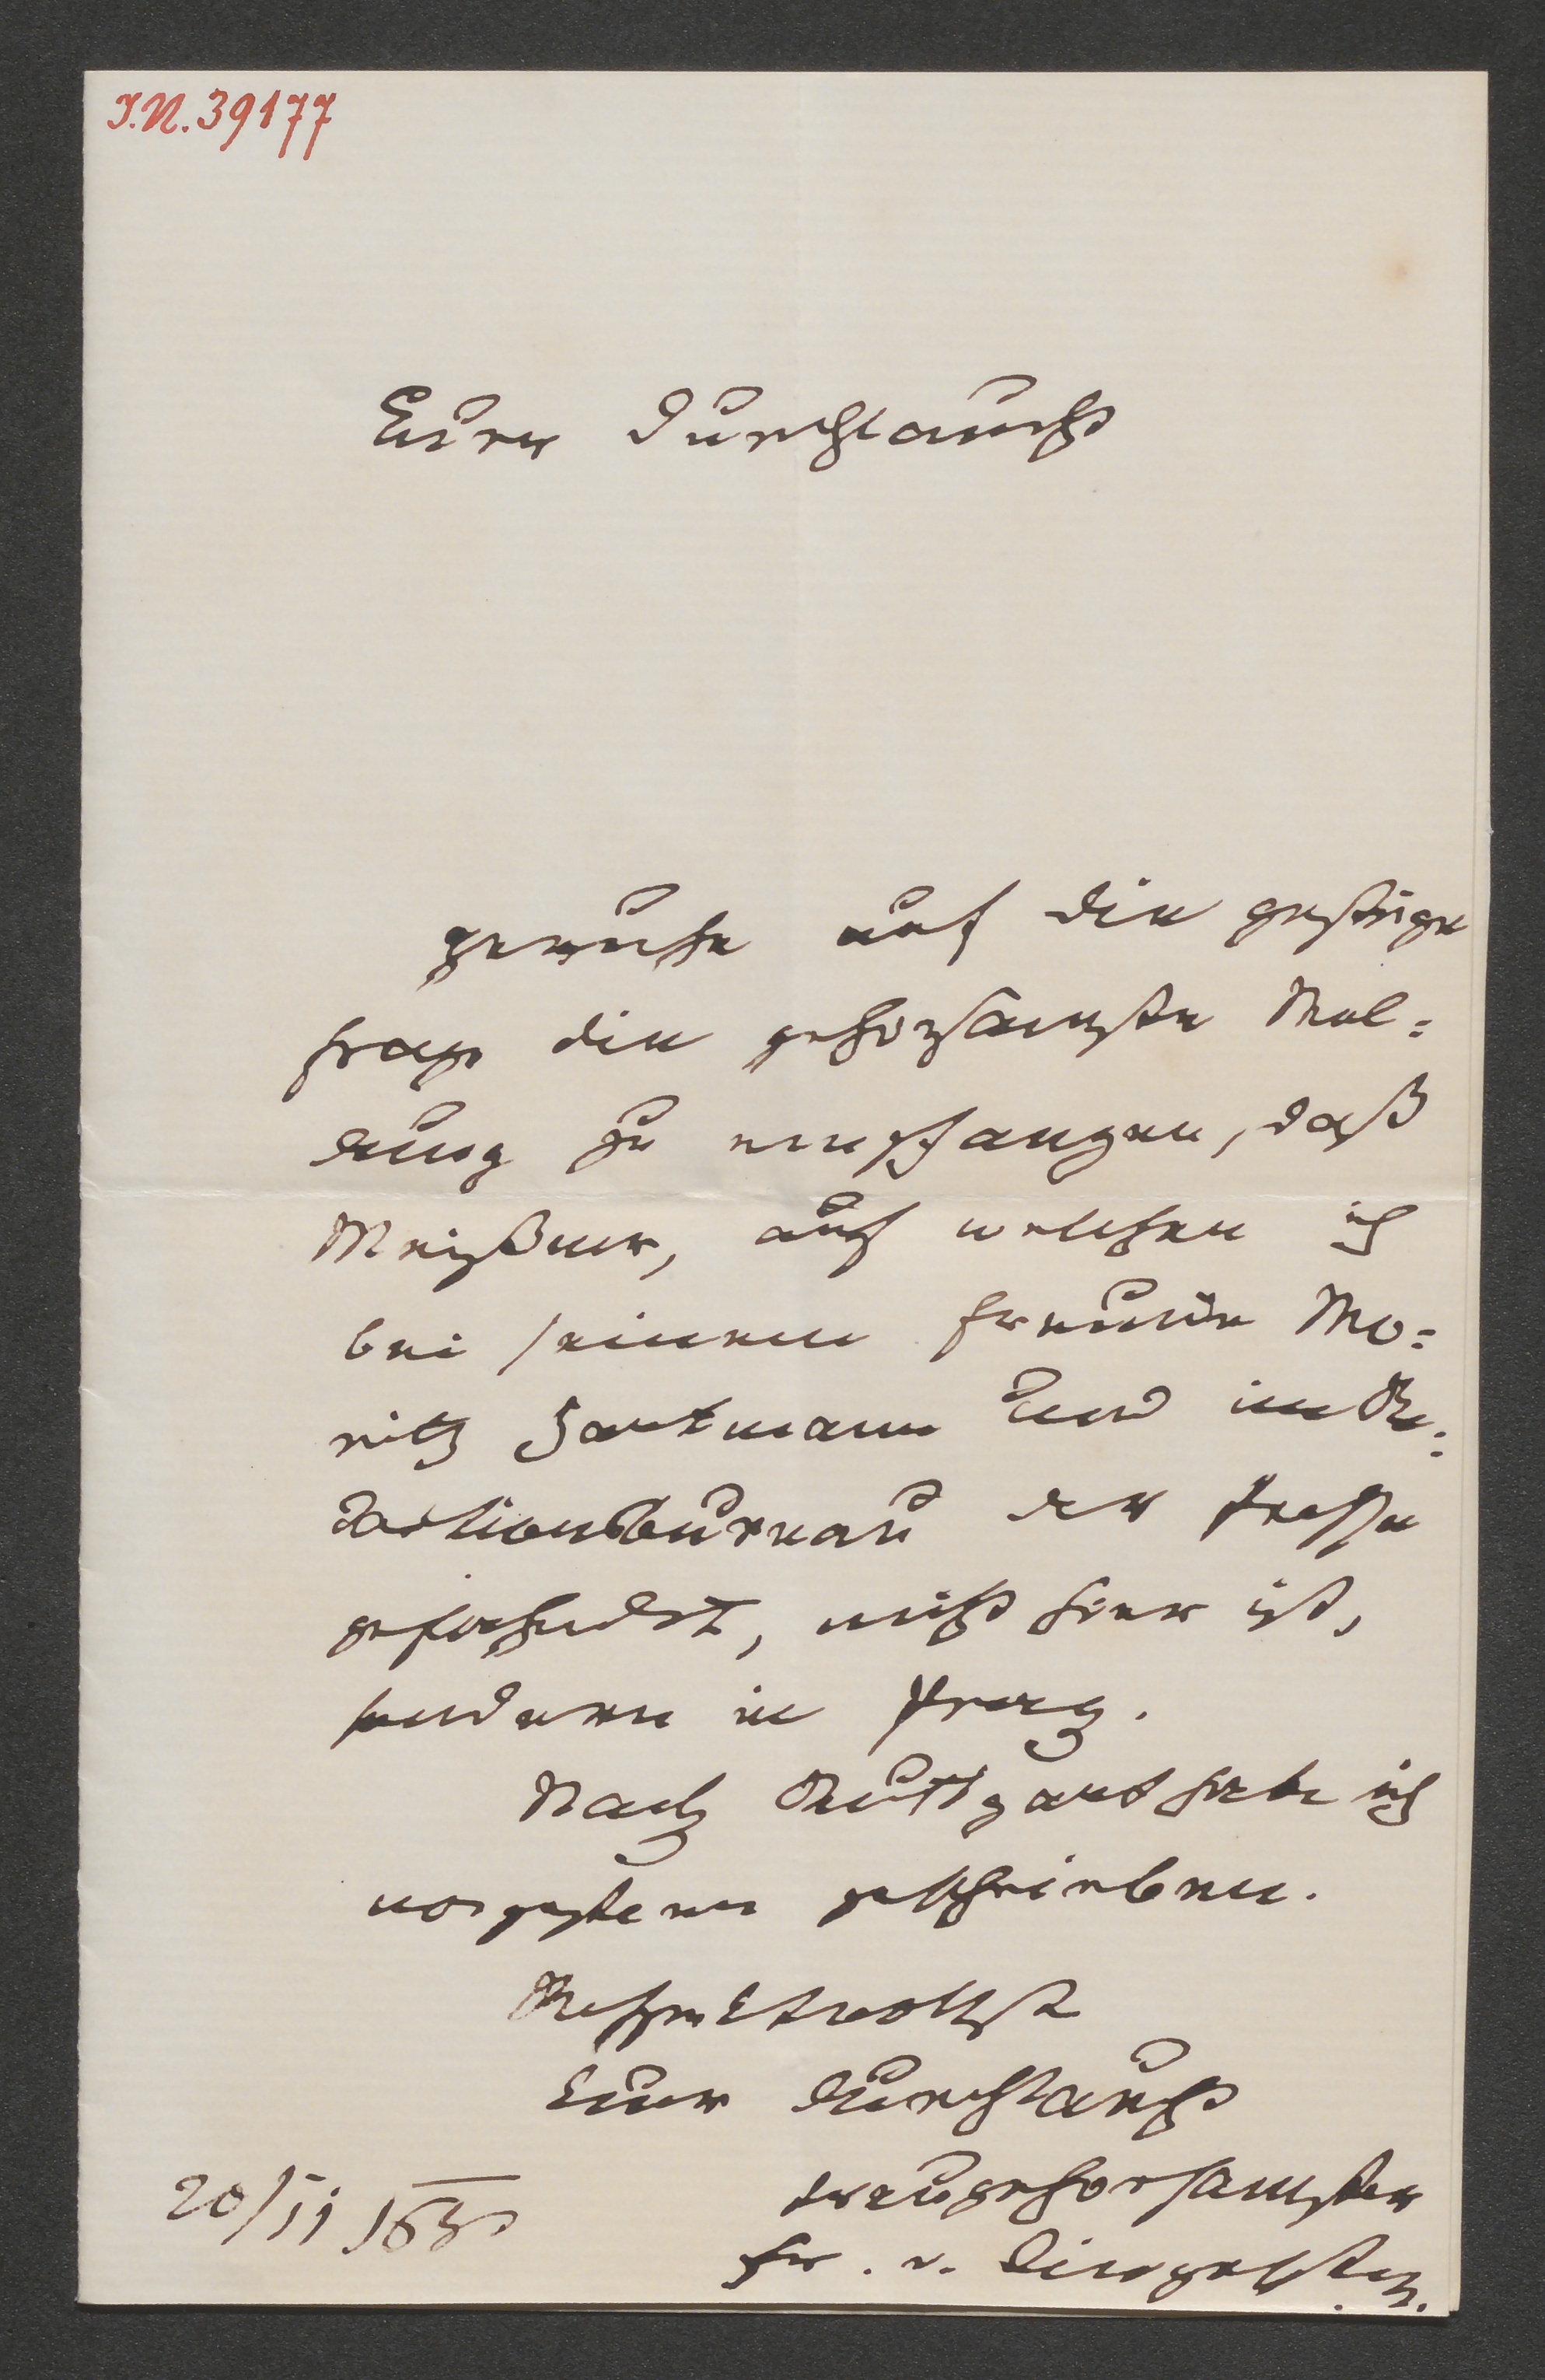 I.N. 39177
Eurer Durchlaucht
geruhen auf die gestrige
Frage die gehorsamste Mel=
dung zu empfangen, daß
Meißner, auf welchen ich
bei seinem Freunde Mo=
ritz Hartmann und im Re=
dactionsbureau der Presse
gefahndet, nicht hier ist,
sondern in Prag.
Nach Stuttgart habe ich
vorgestern geschrieben.
Respectvollst
Eurer Durchlaucht
treugehorsamster
Fr. v. Dingelstedt.
20/II